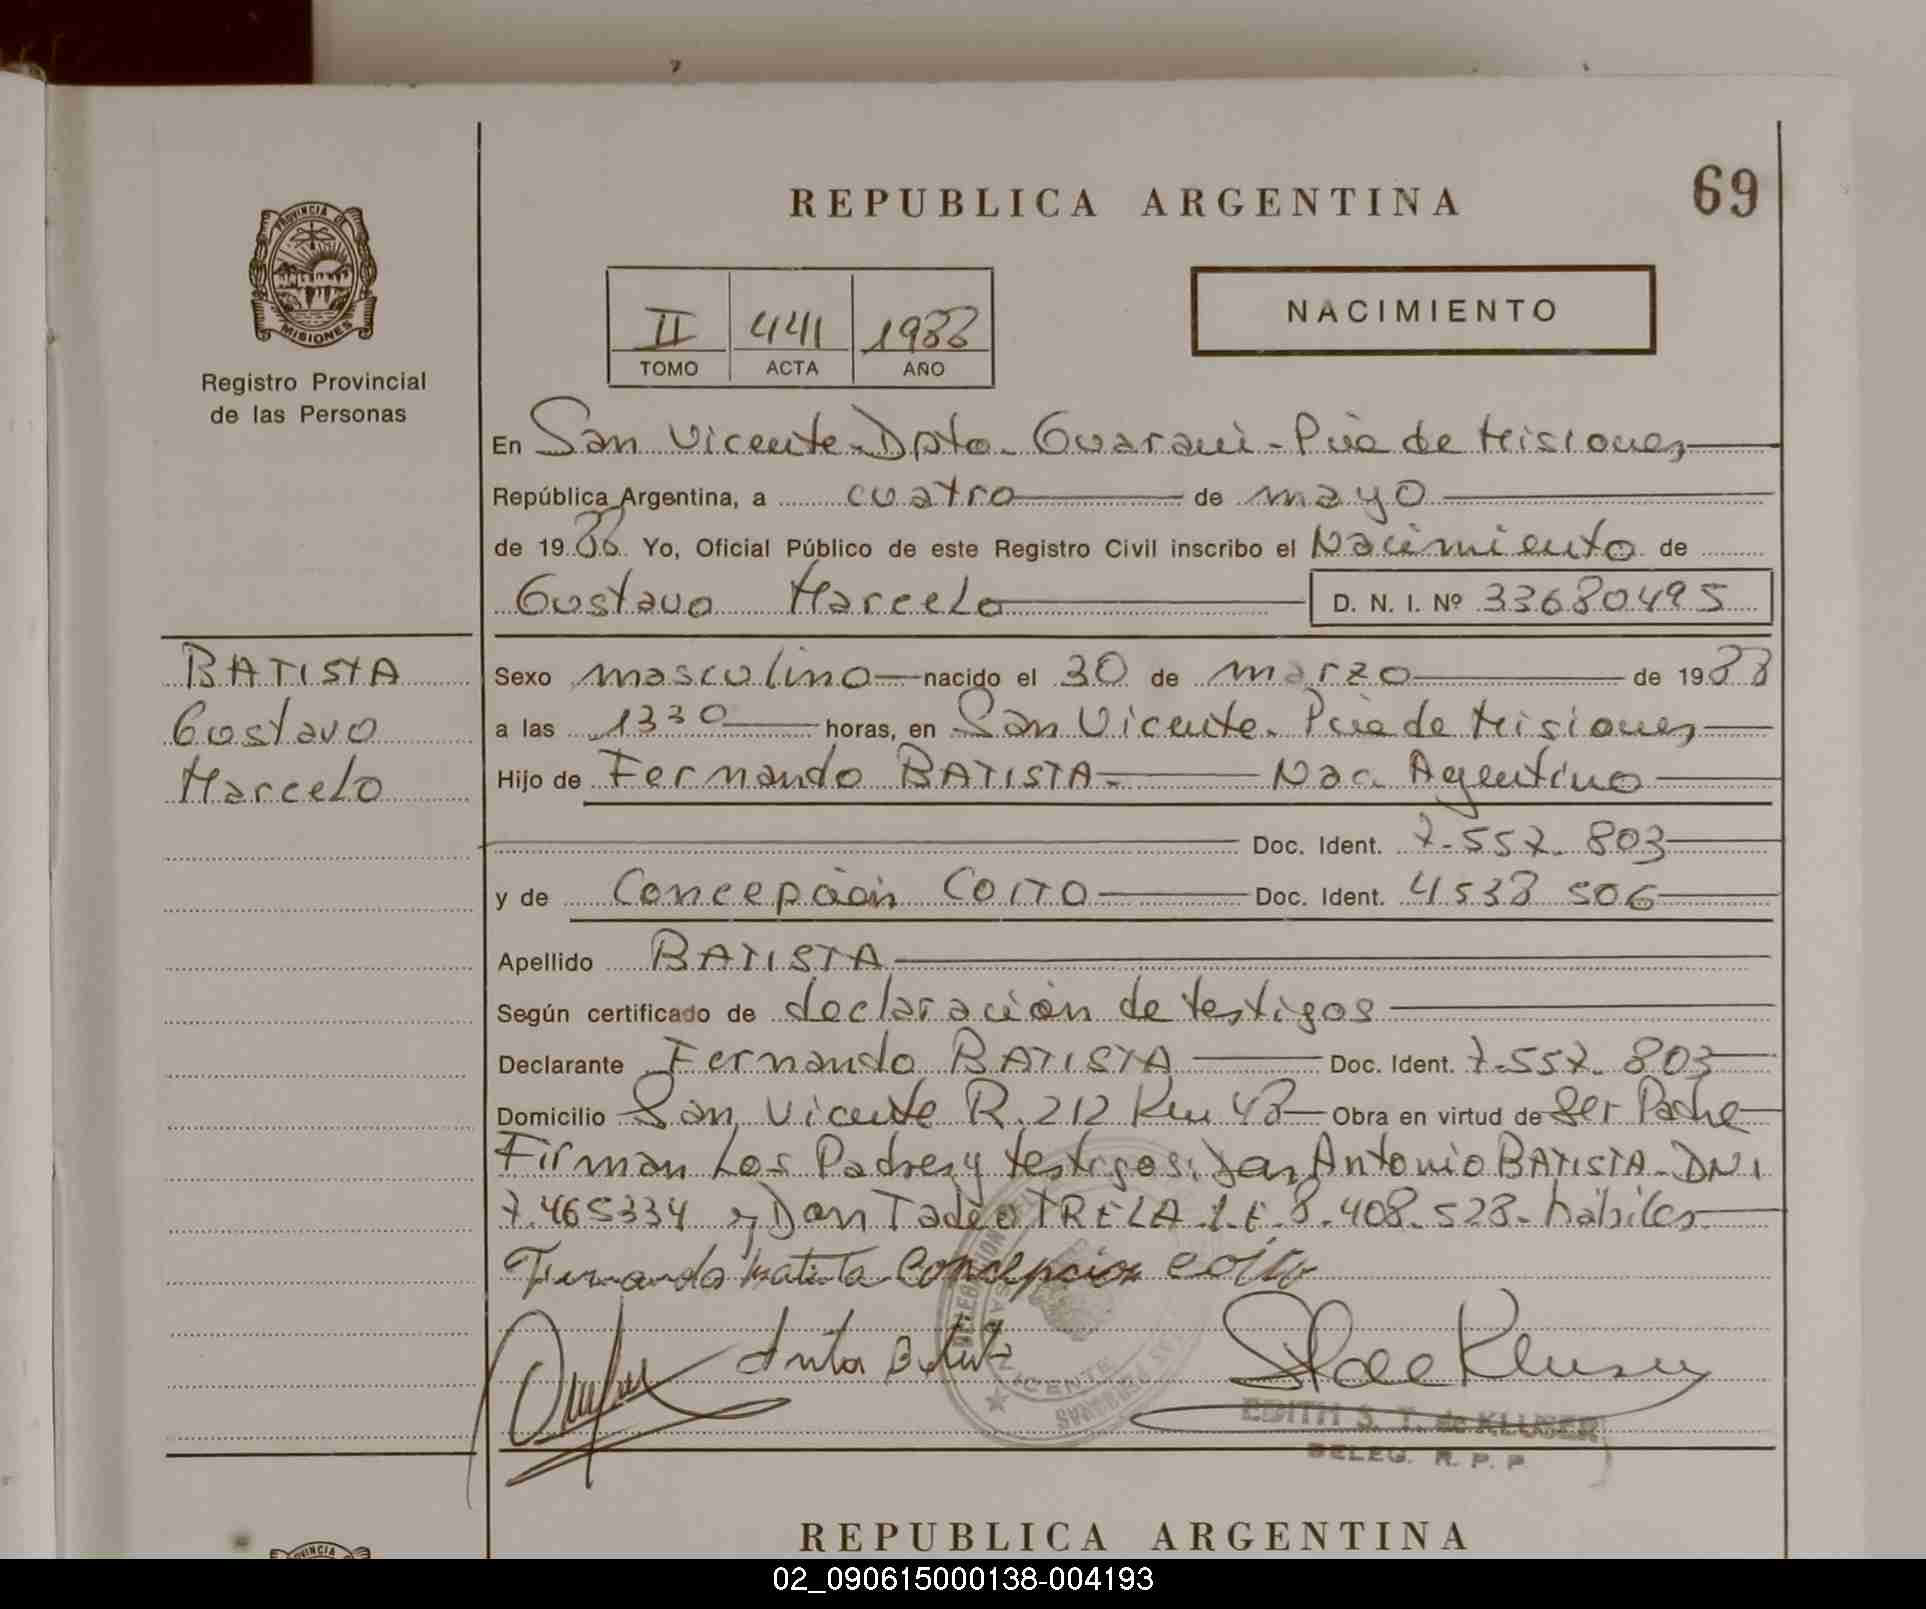 REPUBLICA ARGENTINA
69
PROVINCIA DE
MISIONES
Registro Provincial
de las Personas
II 441 1988
TOMO ACTA AÑO
NACIMIENTO
En San Vicente - Dpto. Guaraní - Pcia de Misiones
República Argentina, a cuatro de mayo
de 1988 Yo, Oficial Público de este Registro Civil inscribo el Nacimiento de
Gustavo Marcelo D. N. I. Nº 33680495
BATISTA
Gustavo
Marcelo
Sexo masculino nacido el 30 de marzo de 1988
a las 1330 horas, en San Vicente. Pcia de Misiones
Hijo de Fernando BATISTA - Nac. Agentino
Doc. Ident. 7.557.803
y de Concepción COITO Doc. Ident. 4538 506
Apellido BATISTA
Según certificado de declaración de testigos
Declarante Fernando BATISTA Doc. Ident. 7.557.803
Domicilio San Vicente R. 212 Km 48 Obra en virtud de Ser Padre
Firman Los Padres y testigos: Don Antonio BATISTA - DNI
7.465334 y Don Tadeo TRELA L.E. 8.408.528 - hábiles
Fernando Batista Concepcion Coito
VICENTE
EDITH S. T. de KLUSER
DELEG. R. P. P.
REPUBLICA ARGENTINA
PROVINCIA
02_090615000138-004193